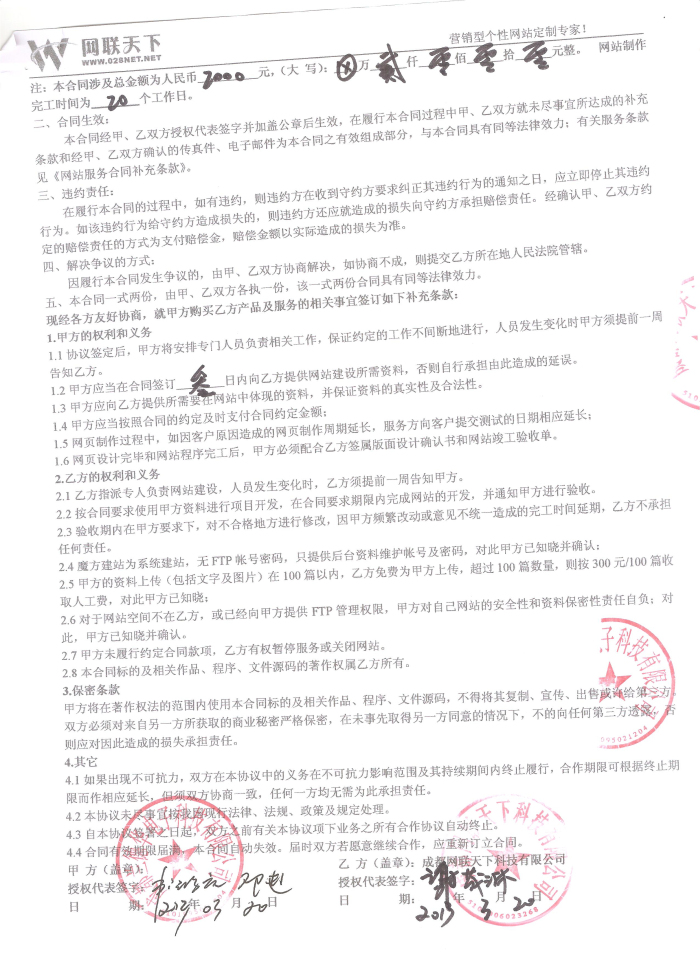 网联天下
WWW.028NET.NET
营销型个性网站定制专家！
注：本合同涉及总金额为人民币 2000 元，（大 写）：⊗万 贰 仟 零 佰 零 拾 零 元整。 网站制作
完工时间为 20 个工作日。
二、合同生效：
本合同经甲、乙双方授权代表签字并加盖公章后生效，在履行本合同过程中甲、乙双方就未尽事宜所达成的补充
条款和经甲、乙双方确认的传真件、电子邮件为本合同之有效组成部分，与本合同具有同等法律效力；有关服务条款
见《网站服务合同补充条款》。
三、违约责任：
在履行本合同的过程中，如有违约，则违约方在收到守约方要求纠正其违约行为的通知之日，应立即停止其违约
行为。如该违约行为给守约方造成损失的，则违约方还应就造成的损失向守约方承担赔偿责任。经确认甲、乙双方约
定的赔偿责任的方式为支付赔偿金，赔偿金额以实际造成的损失为准。
四、解决争议的方式：
因履行本合同发生争议的，由甲、乙双方协商解决，如协商不成，则提交乙方所在地人民法院管辖。
五、本合同一式两份，由甲、乙双方各执一份，该一式两份合同具有同等法律效力。
现经各方友好协商，就甲方购买乙方产品及服务的相关事宜签订如下补充条款：
1.甲方的权利和义务
1.1 协议签定后，甲方将安排专门人员负责相关工作，保证约定的工作不间断地进行，人员发生变化时甲方须提前一周
告知乙方。
1.2 甲方应当在合同签订 叁 日内向乙方提供网站建设所需资料，否则自行承担由此造成的延误。
1.3 甲方应向乙方提供所需要在网站中体现的资料，并保证资料的真实性及合法性。
1.4 甲方应当按照合同的约定及时支付合同约定金额；
1.5 网页制作过程中，如因客户原因造成的网页制作周期延长，服务方向客户提交测试的日期相应延长；
1.6 网页设计完毕和网站程序完工后，甲方必须配合乙方签属版面设计确认书和网站竣工验收单。
2.乙方的权利和义务
2.1 乙方指派专人负责网站建设，人员发生变化时，乙方须提前一周告知甲方。
2.2 按合同要求使用甲方资料进行项目开发，在合同要求期限内完成网站的开发，并通知甲方进行验收。
2.3 验收期内在甲方要求下，对不合格地方进行修改，因甲方频繁改动或意见不统一造成的完工时间延期，乙方不承担
任何责任。
2.4 魔方建站为系统建站，无 FTP 帐号密码，只提供后台资料维护帐号及密码，对此甲方已知晓并确认；
2.5 甲方的资料上传（包括文字及图片）在 100 篇以内，乙方免费为甲方上传，超过 100 篇数量，则按 300 元/100 篇收
取人工费，对此甲方已知晓；
2.6 对于网站空间不在乙方，或已经向甲方提供 FTP 管理权限，甲方对自己网站的安全性和资料保密性责任自负；对
此，甲方已知晓并确认。
2.7 甲方未履行约定合同款项，乙方有权暂停服务或关闭网站。
2.8 本合同标的及相关作品、程序、文件源码的著作权属乙方所有。
3.保密条款
甲方将在著作权法的范围内使用本合同标的及相关作品、程序、文件源码，不得将其复制、宣传、出售或 给第三方
双方必须对来自另一方所获取的商业秘密严格保密，在未事先取得另一方同意的情况下，不的向任何第三方透露，否
则应对因此造成的损失承担责任。
4.其它
4.1 如果出现不可抗力，双方在本协议中的义务在不可抗力影响范围及其持续期间内终止履行，合作期限可根据终止期
限而作相应延长，但须双方协商一致，任何一方均无需为此承担责任。
4.2 本协议未尽事宜按我国现行法律、法规、政策及规定处理。
4.3 自本协议签署之日起，双方之前有关本协议项下业务之所有合作协议自动终止。
4.4 合同有效期限届满，本合同自动失效。届时双方若愿意继续合作，应重新订立合同。
甲 方（盖章）：
乙 方（盖章）：成都网联天下科技有限公司
授权代表签字：
授权代表签字：
日 期： 2013 年 03 月 20
日 期： 2013 3 月 20 日
子科技有限公司
095021204
天下科技有限公司
5101006023268